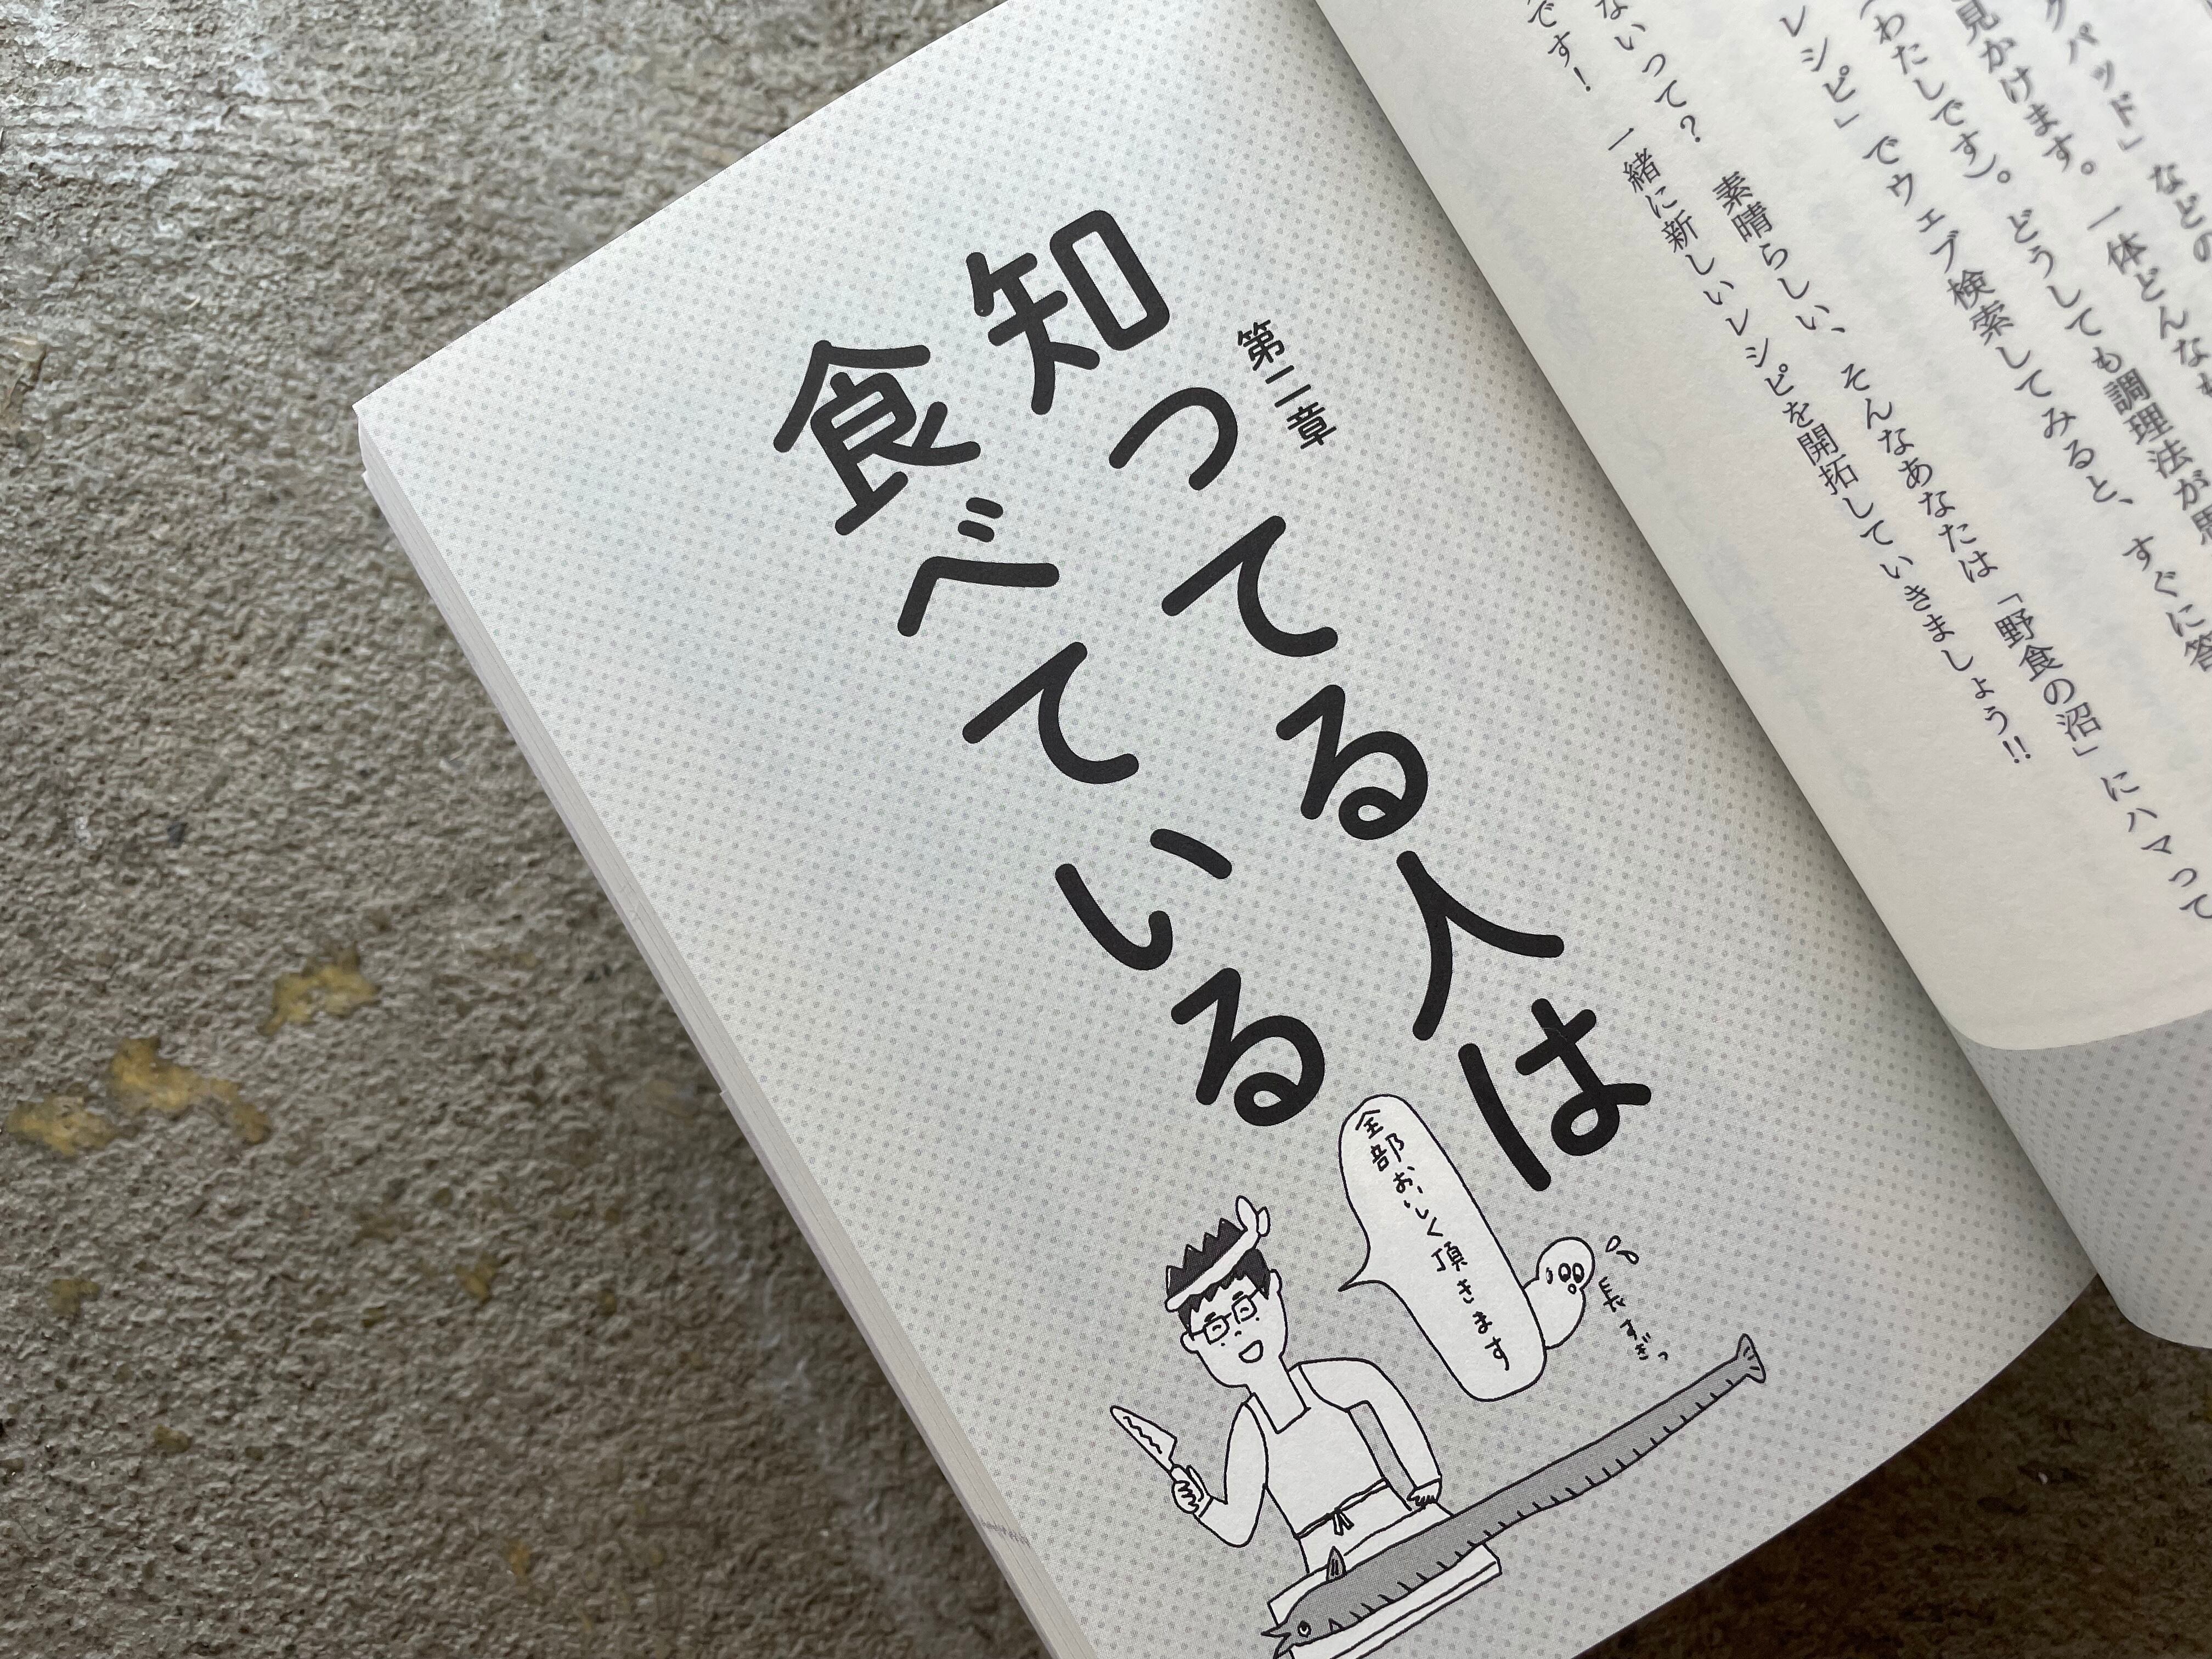 クパッド」などの
見かけます。一体どんな
（わたしです）。どうしても調理法が思
レシピ」でウェブ検索してみると、すぐに答
ないって？　素晴らしい、そんなあなたは「野食の沼」にハマって
です！　一緒に新しいレシピを開拓していきましょう!!
第二章
知ってる人は
食べている
全部おいしく頂きます
長すぎっ